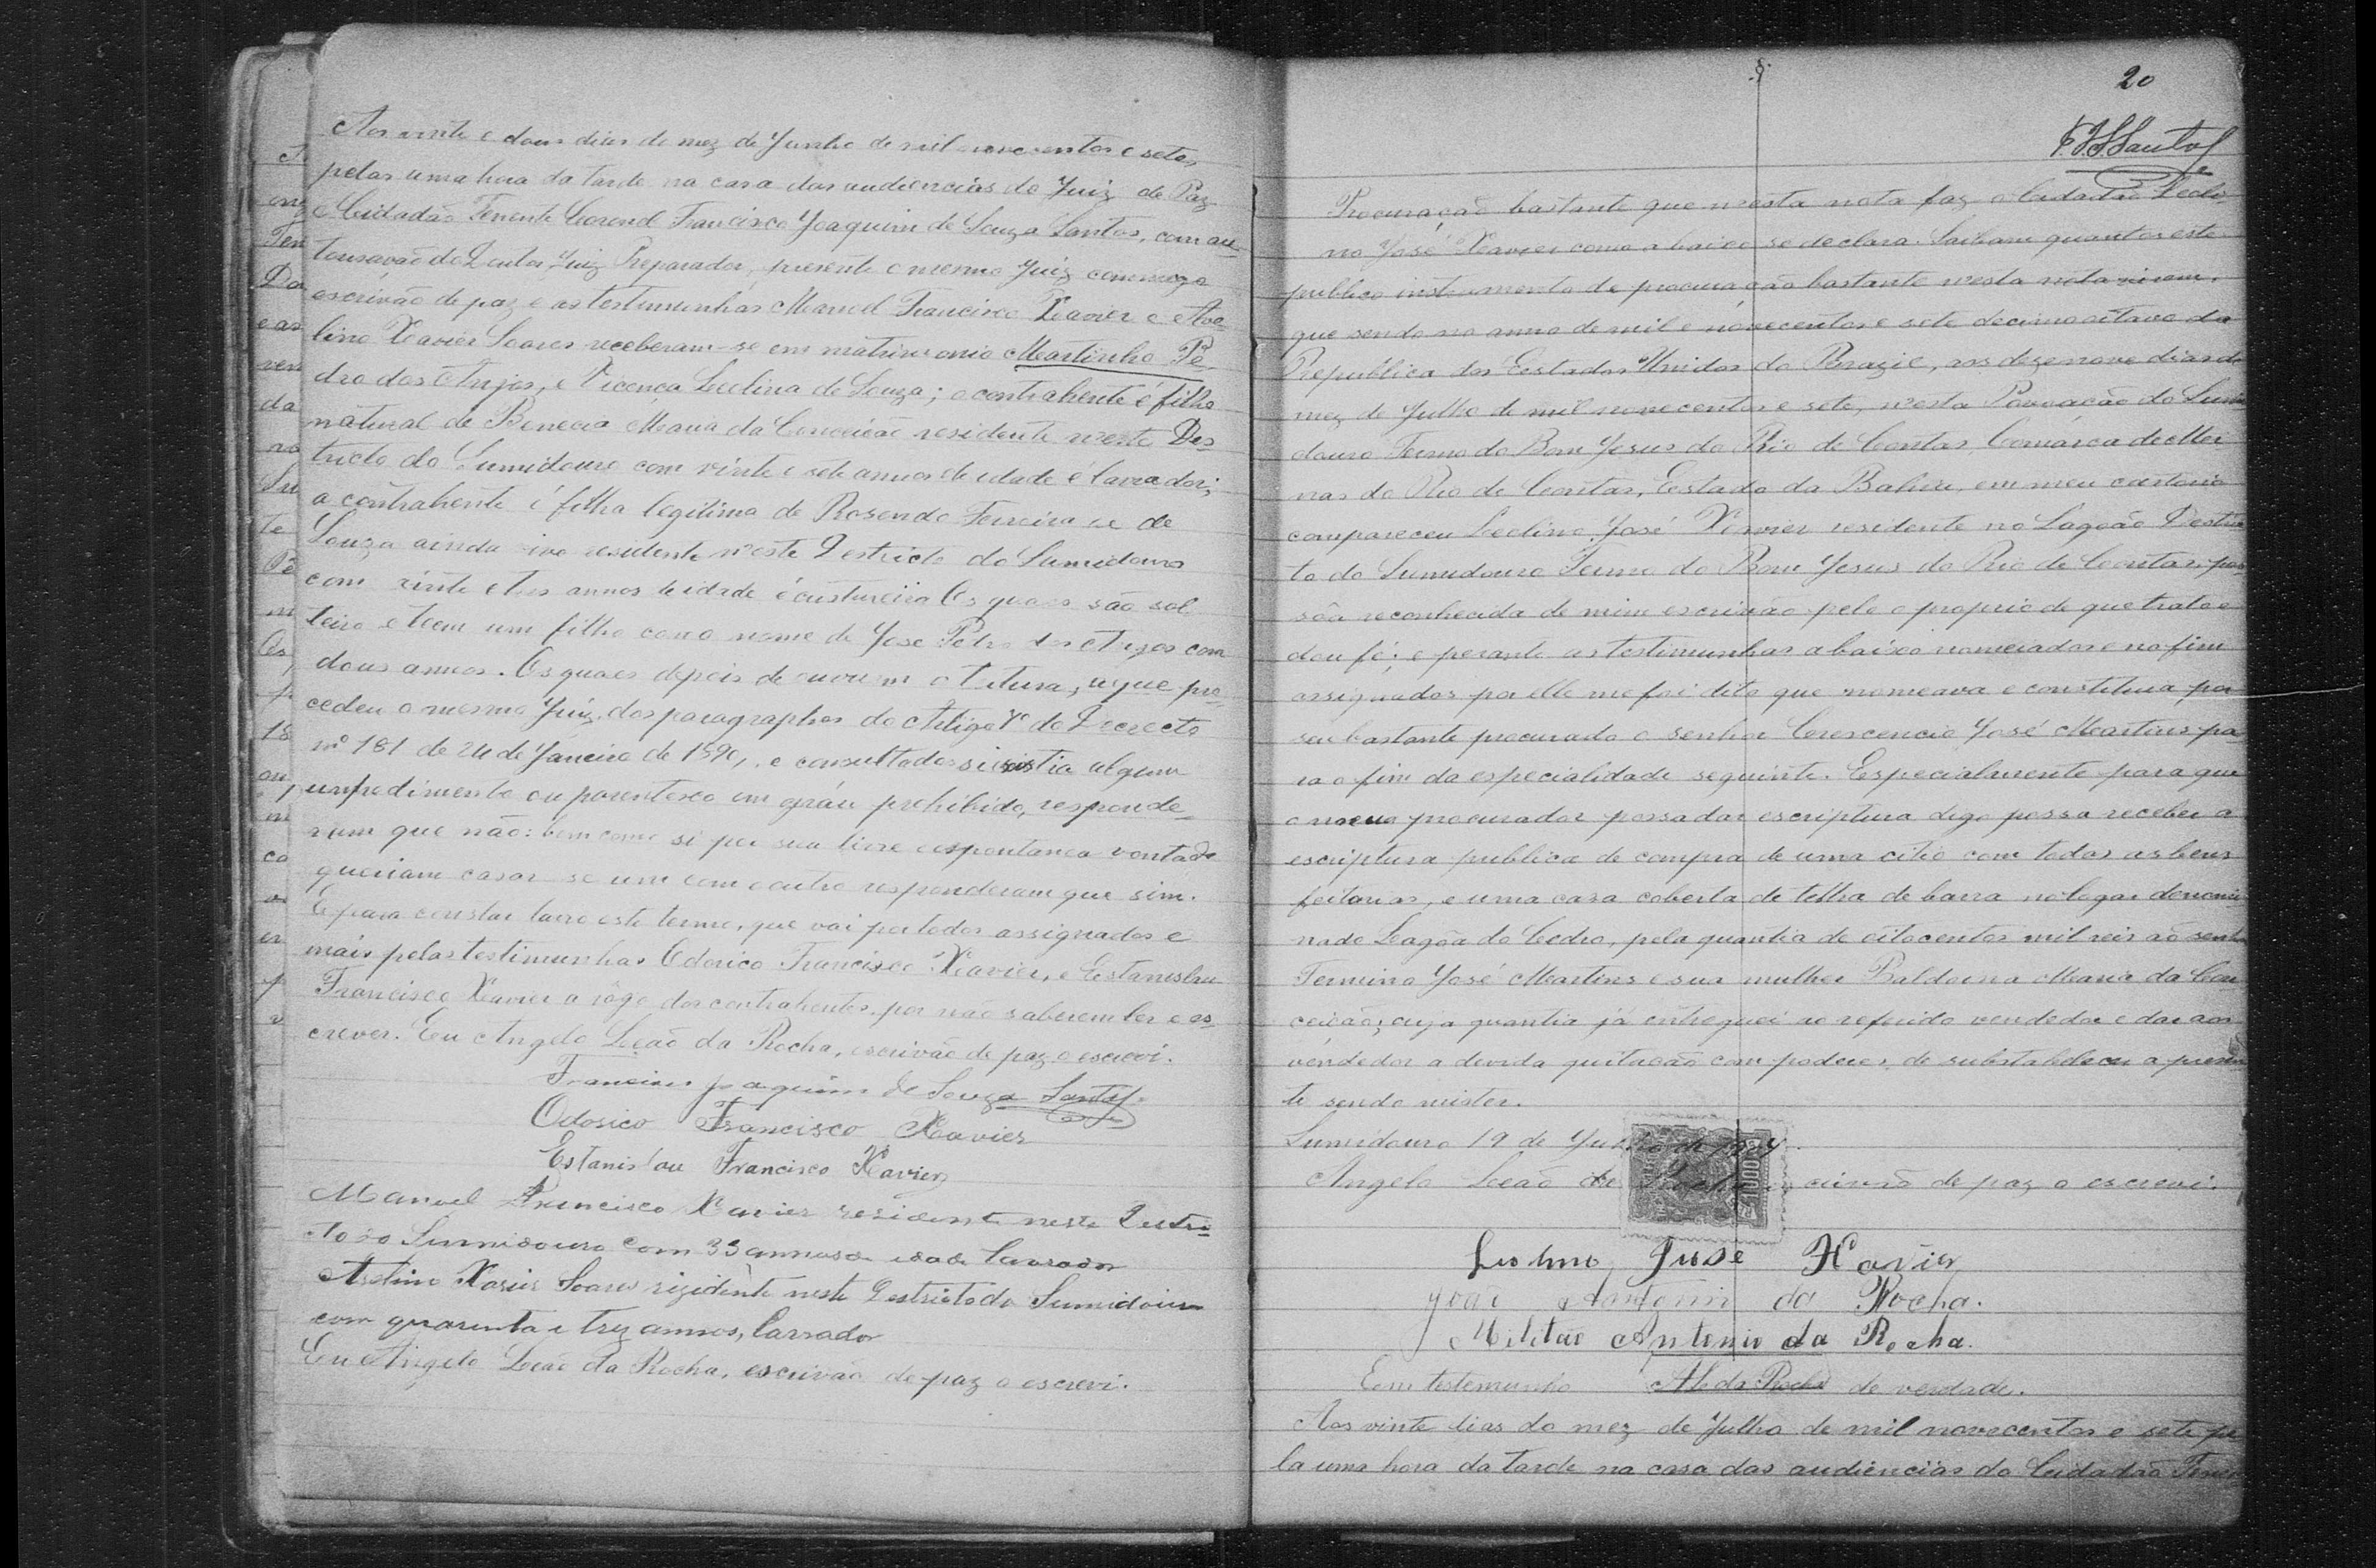 Aos vinte e dous dias do mez de Junho de mil novecentos e sete,
pelas uma hora da tarde na casa das audiencias do Juiz de Paz
o Cidadão Tenente Coronel Francisco Joaquim de Souza Santos, com au-
tourisação do Doutor Juiz Preparador, presente o mesmo Juiz commigo
escrivão de paz e as testimunhas Manoel Francisco Xavier e Ave-
lino Xavier Soares receberam-se em matrimonio Martinho Pe-
dro dos Anjos, e Vicença Leolina de Souza; o contrahente é filho
natural de Benecia Maria da Conceição residente neste Des-
tricto do Sumidouro com vinte e sete annos de idade é lavrador;
a contrahente é filha legitima de Rosendo Ferreira de
Souza ainda vivo residente neste Destricto do Sumidouro
com vinte e tres annos de idade é custureira Os quaes são sol
teiro e teem um filho com o nome de Jose Pedro dos Anjos com
dous annos. Os quaes depois de ouvirem a leitura, a que pro-
cedeu o mesmo Juiz dos paragraphos do Artigo 7º do Decreto
nº 181 de 24 de Janeiro de 1890, e consultados si existia algum
impedimento ou parentesco em gráu prohibido, responde-
ram que não: bem como si por sua livre e espontanea vontade
queriam casar-se um com o outro responderam que sim.
E para constar lavro este termo, que vai por todos assignados e
mais pelas testimunhas Odorico Francisco Xavier, e Estanislau
Francisco Xavier a rôgo dos contrahentes por não saberem ler e es-
crever. Eu Angelo Leão da Rocha, escrivão de paz o escrevi.
Francisco Joaquim de Souza Santos
Odorico Francisco Xavier
Estanislau Francisco Xavier
Manoel Francisco Xavier residente neste Destri-
to do Sumidouro com 33 annos de idade lavrador
Avelino Xavier Soares rizidente neste Destricto do Sumidouro
com quarenta e trez annos, lavrador
Eu Angelo Leão da Rocha, escrivão de paz o escrevi.
20
F. J. S. Santos
Procuração bastante que nesta nota faz o Cidadão Leoli-
no José Xavier como abaixo se declara. Saibam quantos este
publico instrumento de procuração bastante nesta nota virem,
que sendo no anno de mil e novecentos e sete decimo oitavo da
Republica dos Estados Unidos do Brazil, aos dezenove dias do
mez de Julho de mil novecentos e sete, nesta Povoação do Sumi
douro Termo do Bom Jesus do Rio de Contas, Comarca de Mei
nas do Rio de Contas, Estado da Bahia, em meu cartorio
compareceu Leolino José Xavier residente no Lagoão Destric
to do Sumidouro Termo do Bom Jesus do Rio de Contas, pes-
sôa reconhecida de mim escrivão pelo o proprio de que trato e
dou fé; e perante as testimunhas abaixo nomeiados e no fim
assignados por elle me foi dito que nomeava e constituia por
seu bastante procurado o senhor Crescencio José Martins pa-
ra o fim da especialidade seguinte. Especialmente para que
o meu procurador possa dar escriptura digo possa receber a
escriptura publica de compra de uma citio com todas as bens
feitorias, e uma casa coberta de telha de barra no logar denomi
nado Lagôa do Cedro, pela quantia de oitocentos mil reis ao senhor
Fermino José Martins e sua mulher Baldoina Maria da Con
ceição; cuja quantia já entreguei ao referido vendedor e dar aos
vendedor a devida quitação com poderes de substabelecer a presen
te sendo mister.
Sumidouro 19 de Julho de 1907.
Angelo Leão da Rocha escrivão de paz o escrevi.
1000
Leolino José Xavier
João Antonio da Rocha.
Militão Antonio da Rocha.
Em testemunho ALda Rocha de verdade.
Aos vinte dias do mez de Julho de mil novecentos e sete pe
la uma hora da tarde na casa das audiencias do Cidadão Tenen